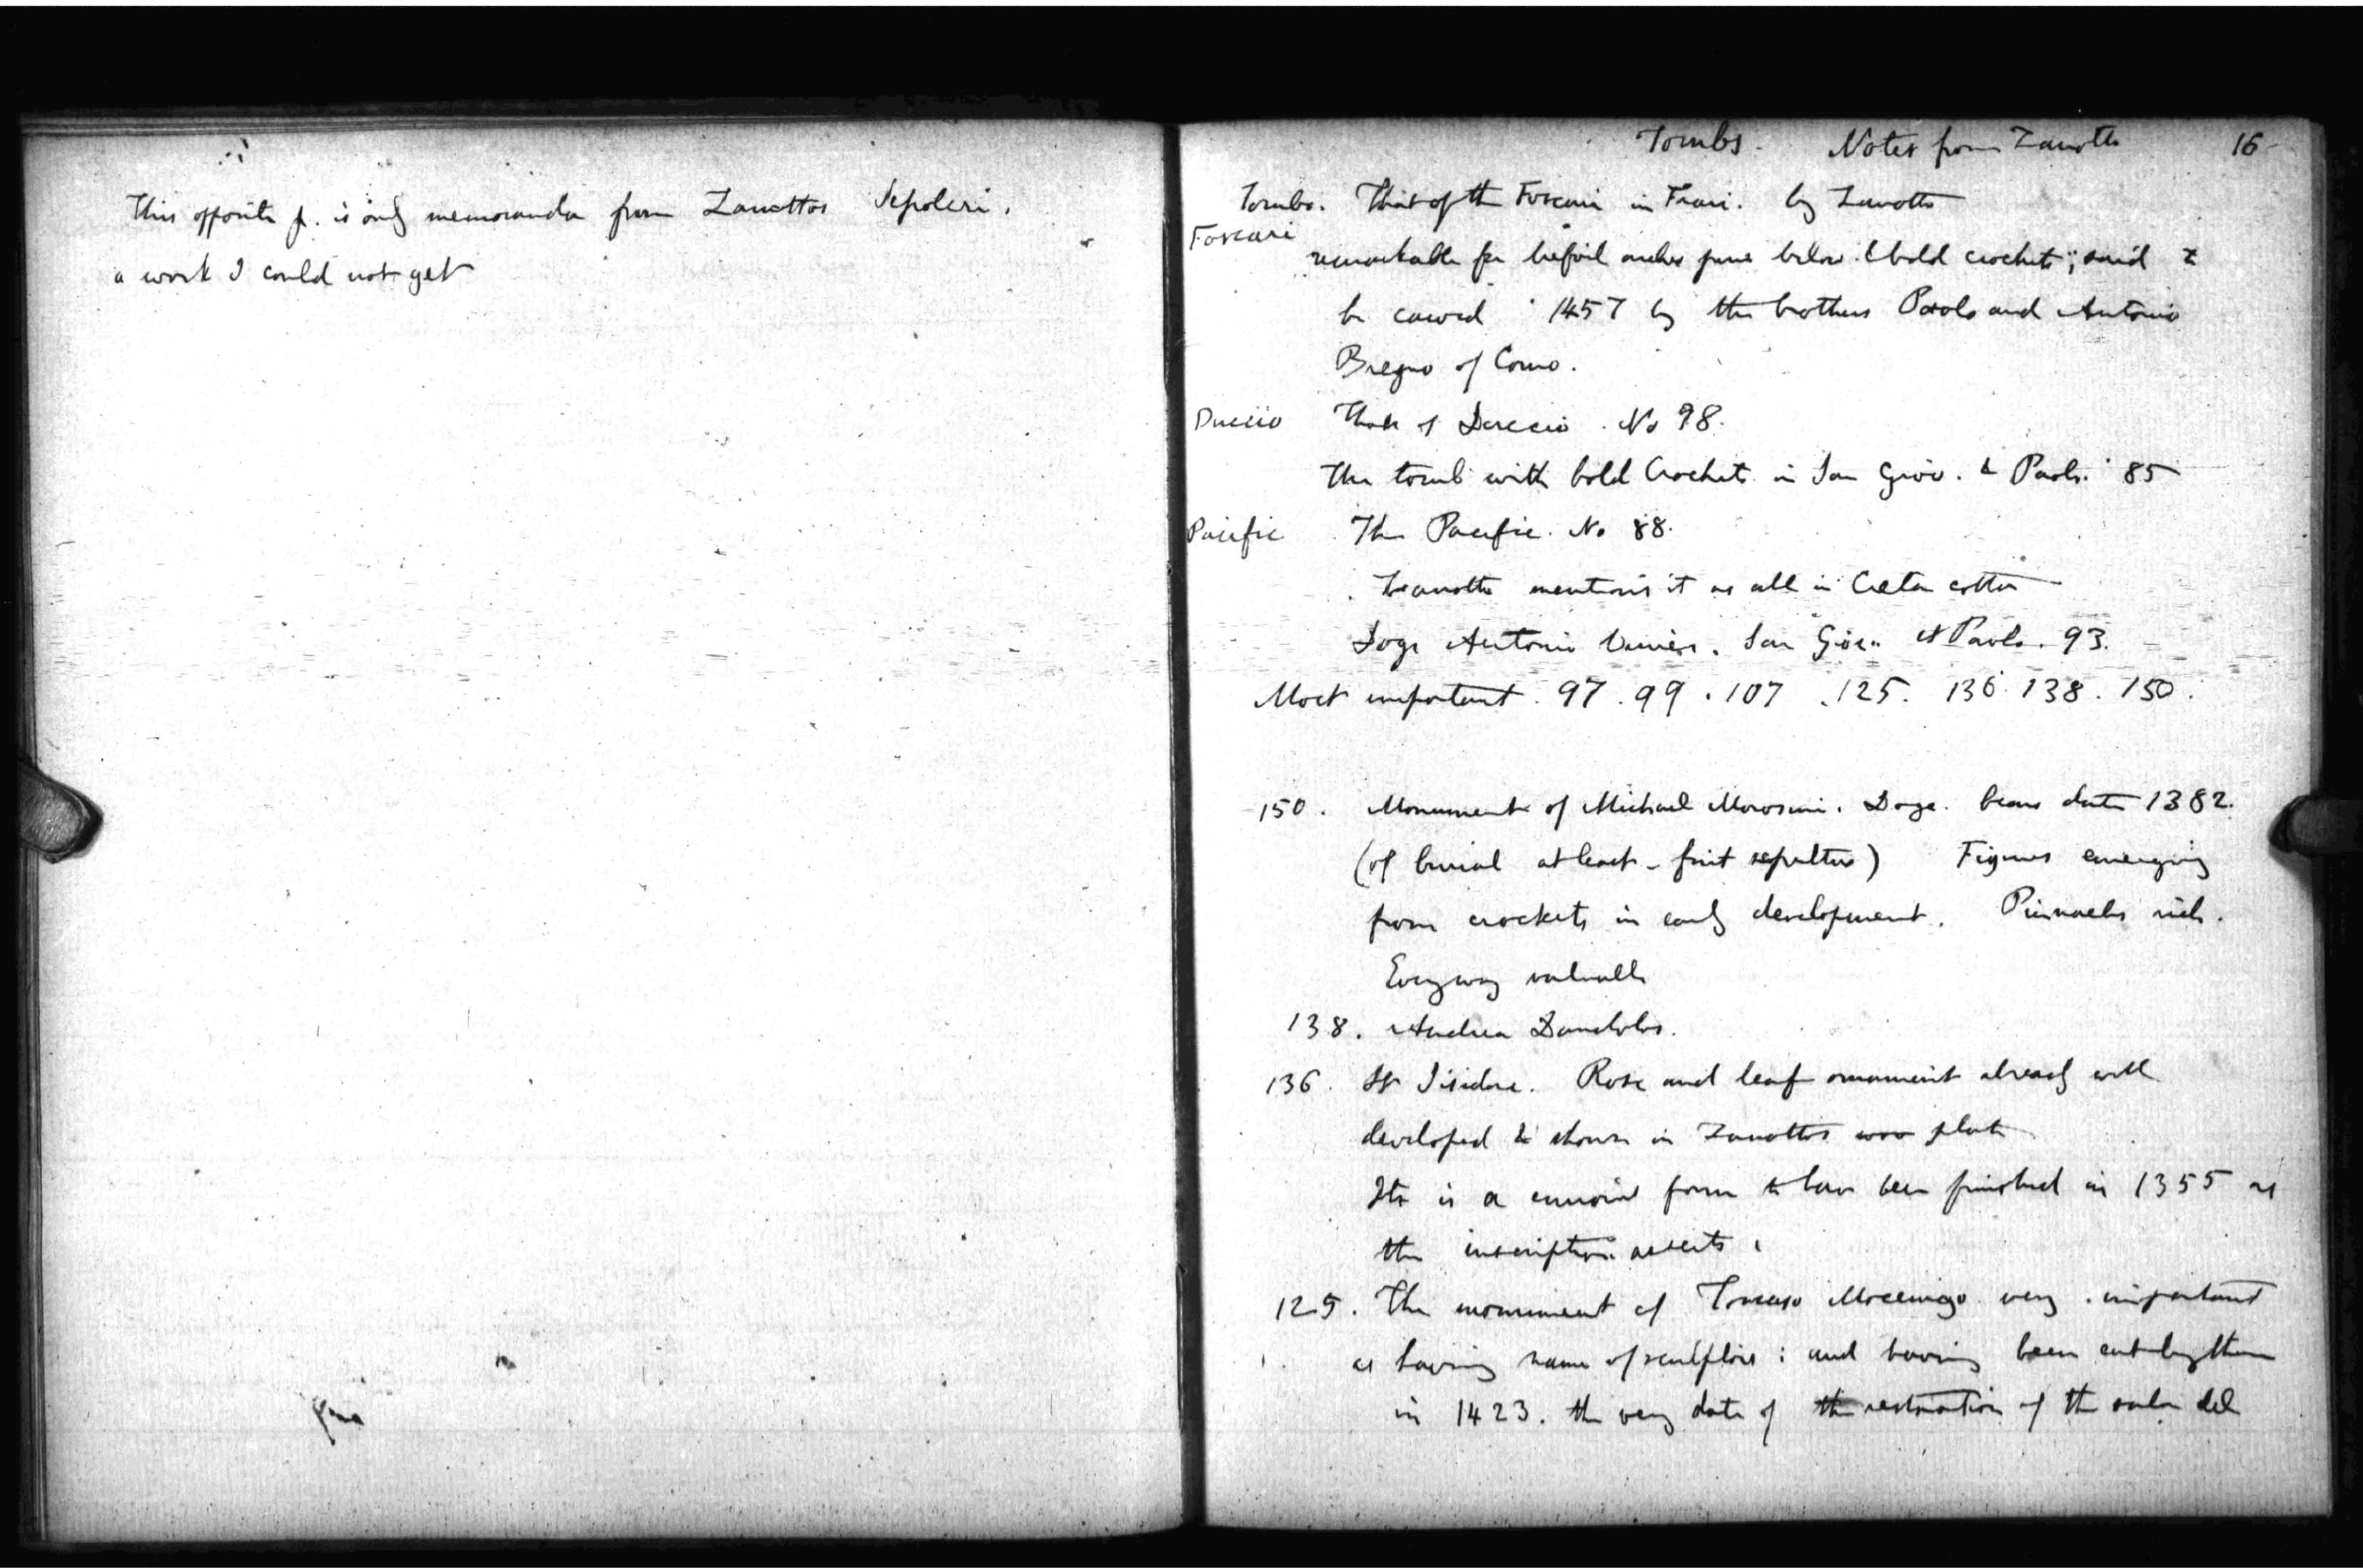 This opposite p. is only memoranda from Zanottos Sepolcri.
a work I could not get
Tombs. Notes from Zanotto 16
Tombs. That of the Foscari in Frari. by Zanotto
Foscari
remarkable for trefoil arches below. & bold crockets; said to
be carved 1457 by the brothers Paolo and Antonio
Bregno of Como.
Duccio That of Duccio. No 98.
The tomb with bold Crockets in San Giov. & Paolo. 85
Pacific The Pacific. No 88.
Zanotto mentions it as all in Creta cotta
Doge Antonio Venier. San Giov. et Paolo. 93.
Most important. 97. 99. 107. 125. 136. 138. 150.
150. Monument of Michael Morosini. Doge. bears date 1382.
(of burial at least - first sepulture) Figures emerging
from crockets in early development. Pinnacles rich.
Everyway valuable
138. Andrea Dandolos.
136. St Isidore. Rose and leaf ornament already well
developed & shown in Zanottos plate
It is a curious form to have been finished in 1355 as
the inscription asserts.
125. The monument of Tomaso Mocenigo very important
as having name of sculptors: and having been cut by them
in 1423. the very date of the restoration of the sala del